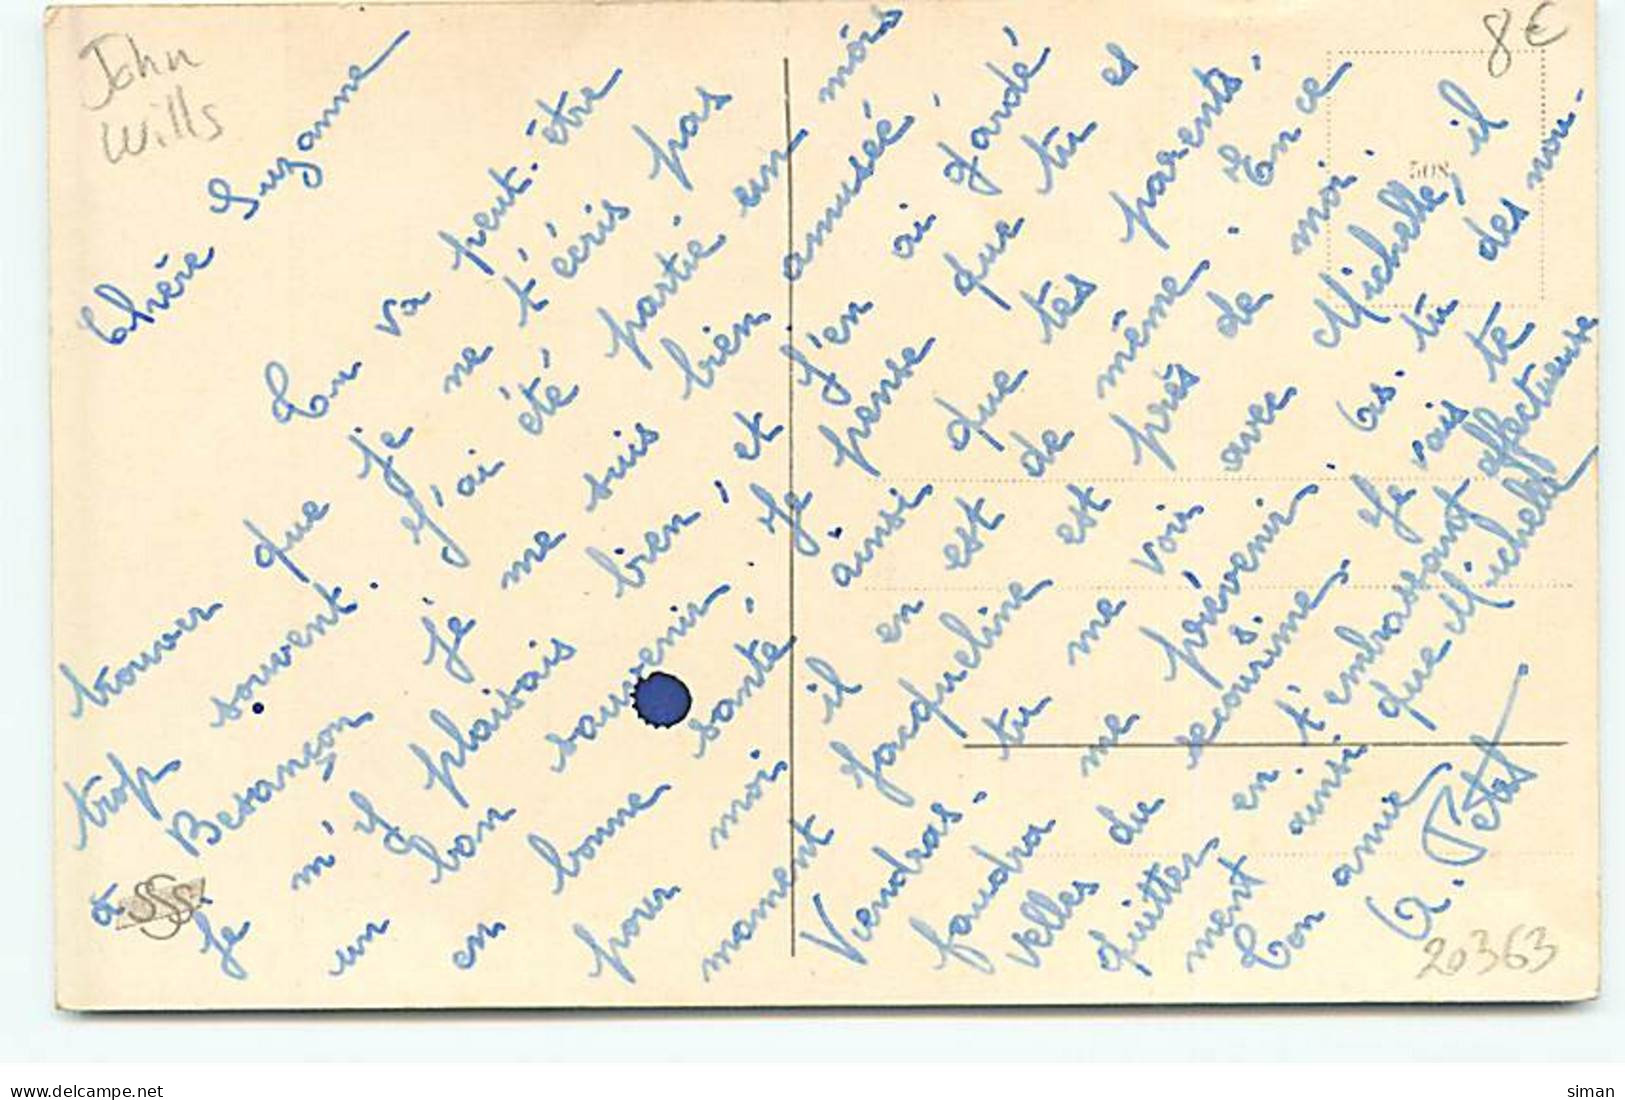 John
Wills
8€
508
Chère Suzanne
Tu va peut-être
trouver que je ne t'écris pas
trop souvent. J'ai été partie un mois
à Besançon je me suis bien amusée,
Je m'y plaisais bien, et j'en ai gardé
un bon souvenir. Je pense que tu es
en bonne santé, ainsi que tes parents,
pour moi il en est de même. En ce
moment Jacqueline est près de moi.
Viendras-tu me voir avec Michelle, il
faudra me prévenir. As-tu des nou-
velles du secourisme. Je vais te
quitter en t'embrassant affectueuse
ment ainsi que Michelle
Ton amie
20363
delcampe.net
siman